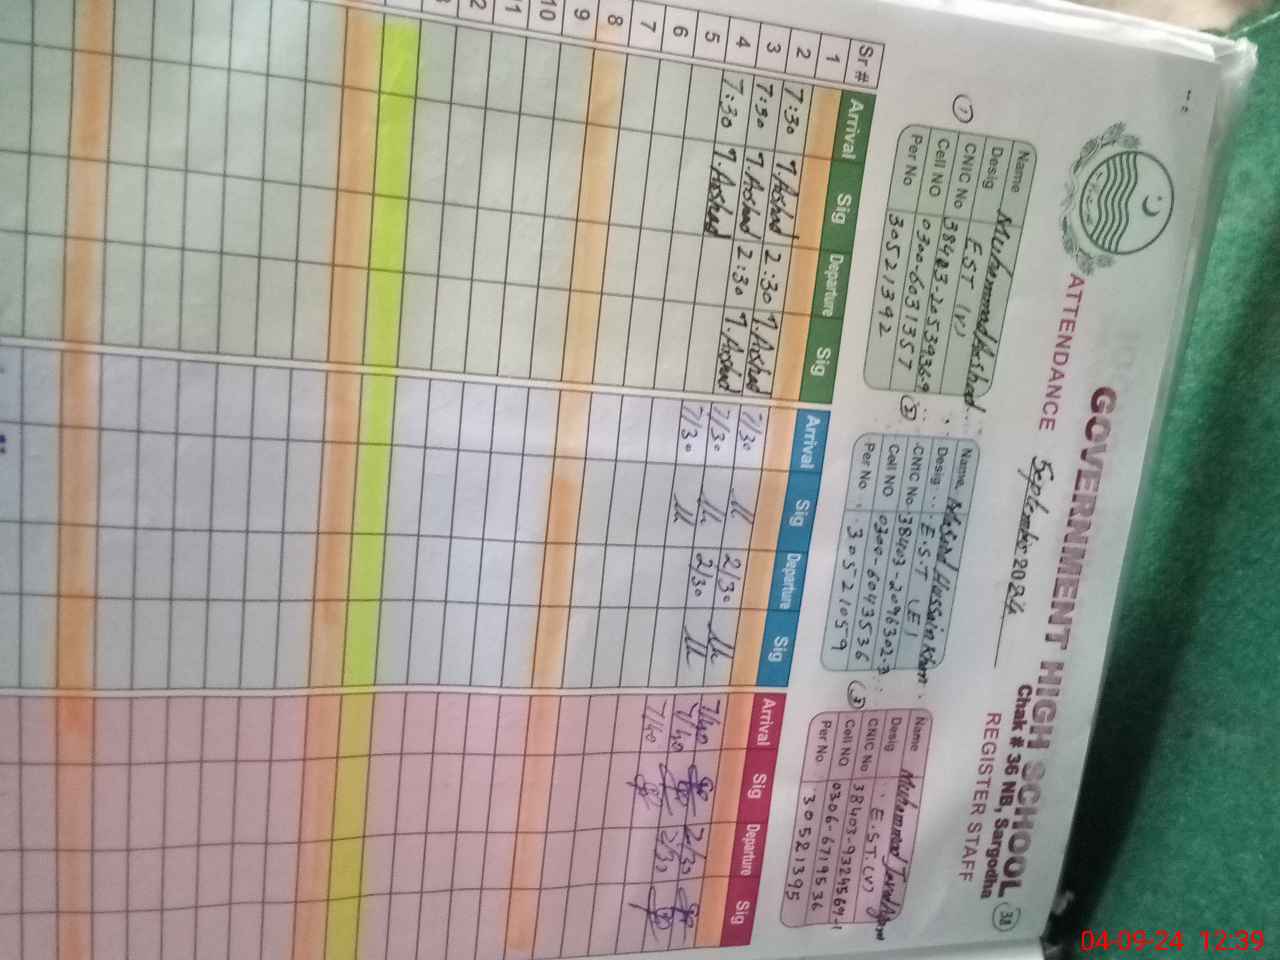 GOVERNMENT HIGH SCHOOL
Chak # 36 NB, Sargodha
38
ATTENDANCE September 2024 REGISTER STAFF
1
Name Muhammad Arshad
Desig E.S.T (V)
CNIC No 38403-2053936-9
Cell NO 0300-6031357
Per No 30521392
2
Name Masood Hussain Khan
Desig E.S.T (E)
CNIC No 38403-2096302-3
Cell NO 0300-6043536
Per No 30521059
3
Name Muhammad Javed
Desig E.S.T. (V)
CNIC No 38403-9324569-1
Cell NO 0306-6719536
Per No 30521395
Sr # Arrival Sig Departure Sig Arrival Sig Departure Sig Arrival Sig Departure Sig
1
2 7:30 M.Arshad 2:30 M.Arshad 7/30 2/30 7/40 2/30
3 7:30 M.Arshad 2:30 M.Arshad 7/30 2/30 7/40 2/30
4 7:30 M.Arshad 7/30 7/40
5
6
7
8
9
10
11
12
04-09-24 12:39